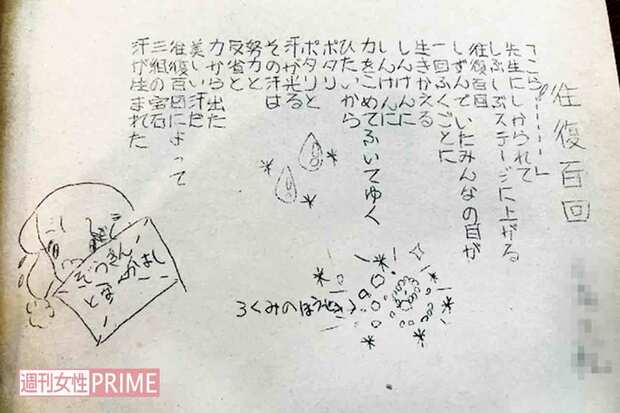 往復百回
「こらーー」
先生にしかられて
しぶしぶステージに上がる
往復百回
しずんでいたみんなの目が
一回ふくごとに
生きかえる
しんけんに
しんけんに
力をこめてふいてゆく
ひたいから
ポタリ
ポタリと
汗が光る
その汗は
努力と
反省と
力から出た
美しい汗だ
往復百回によって
三組の宝石
汗が生まれた
3くみのほうせき
ぞうきん
週刊女性PRIME